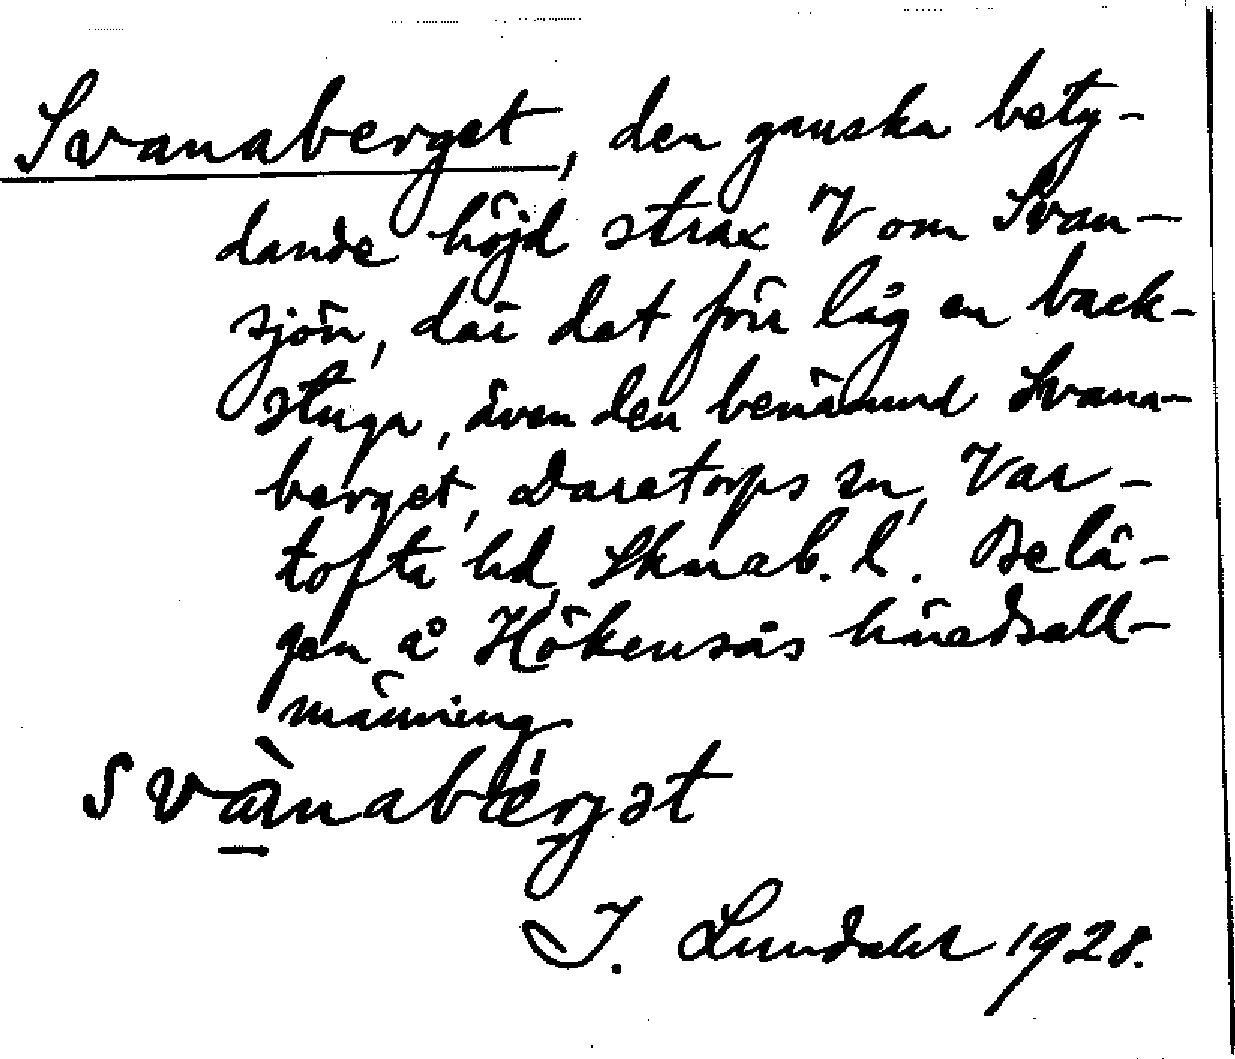 Svanaberget, den ganska bety-
dande höjd strax V om Svan-
sjön, där det förr låg en back-
stuga, även den benämnd Svana-
berget, Daretorps sn, Var-
tofta hd, Skarab. l. Belä-
gen å Hökensås häradsall-
männing
Svànabérgət
I. Lundahl 1928.